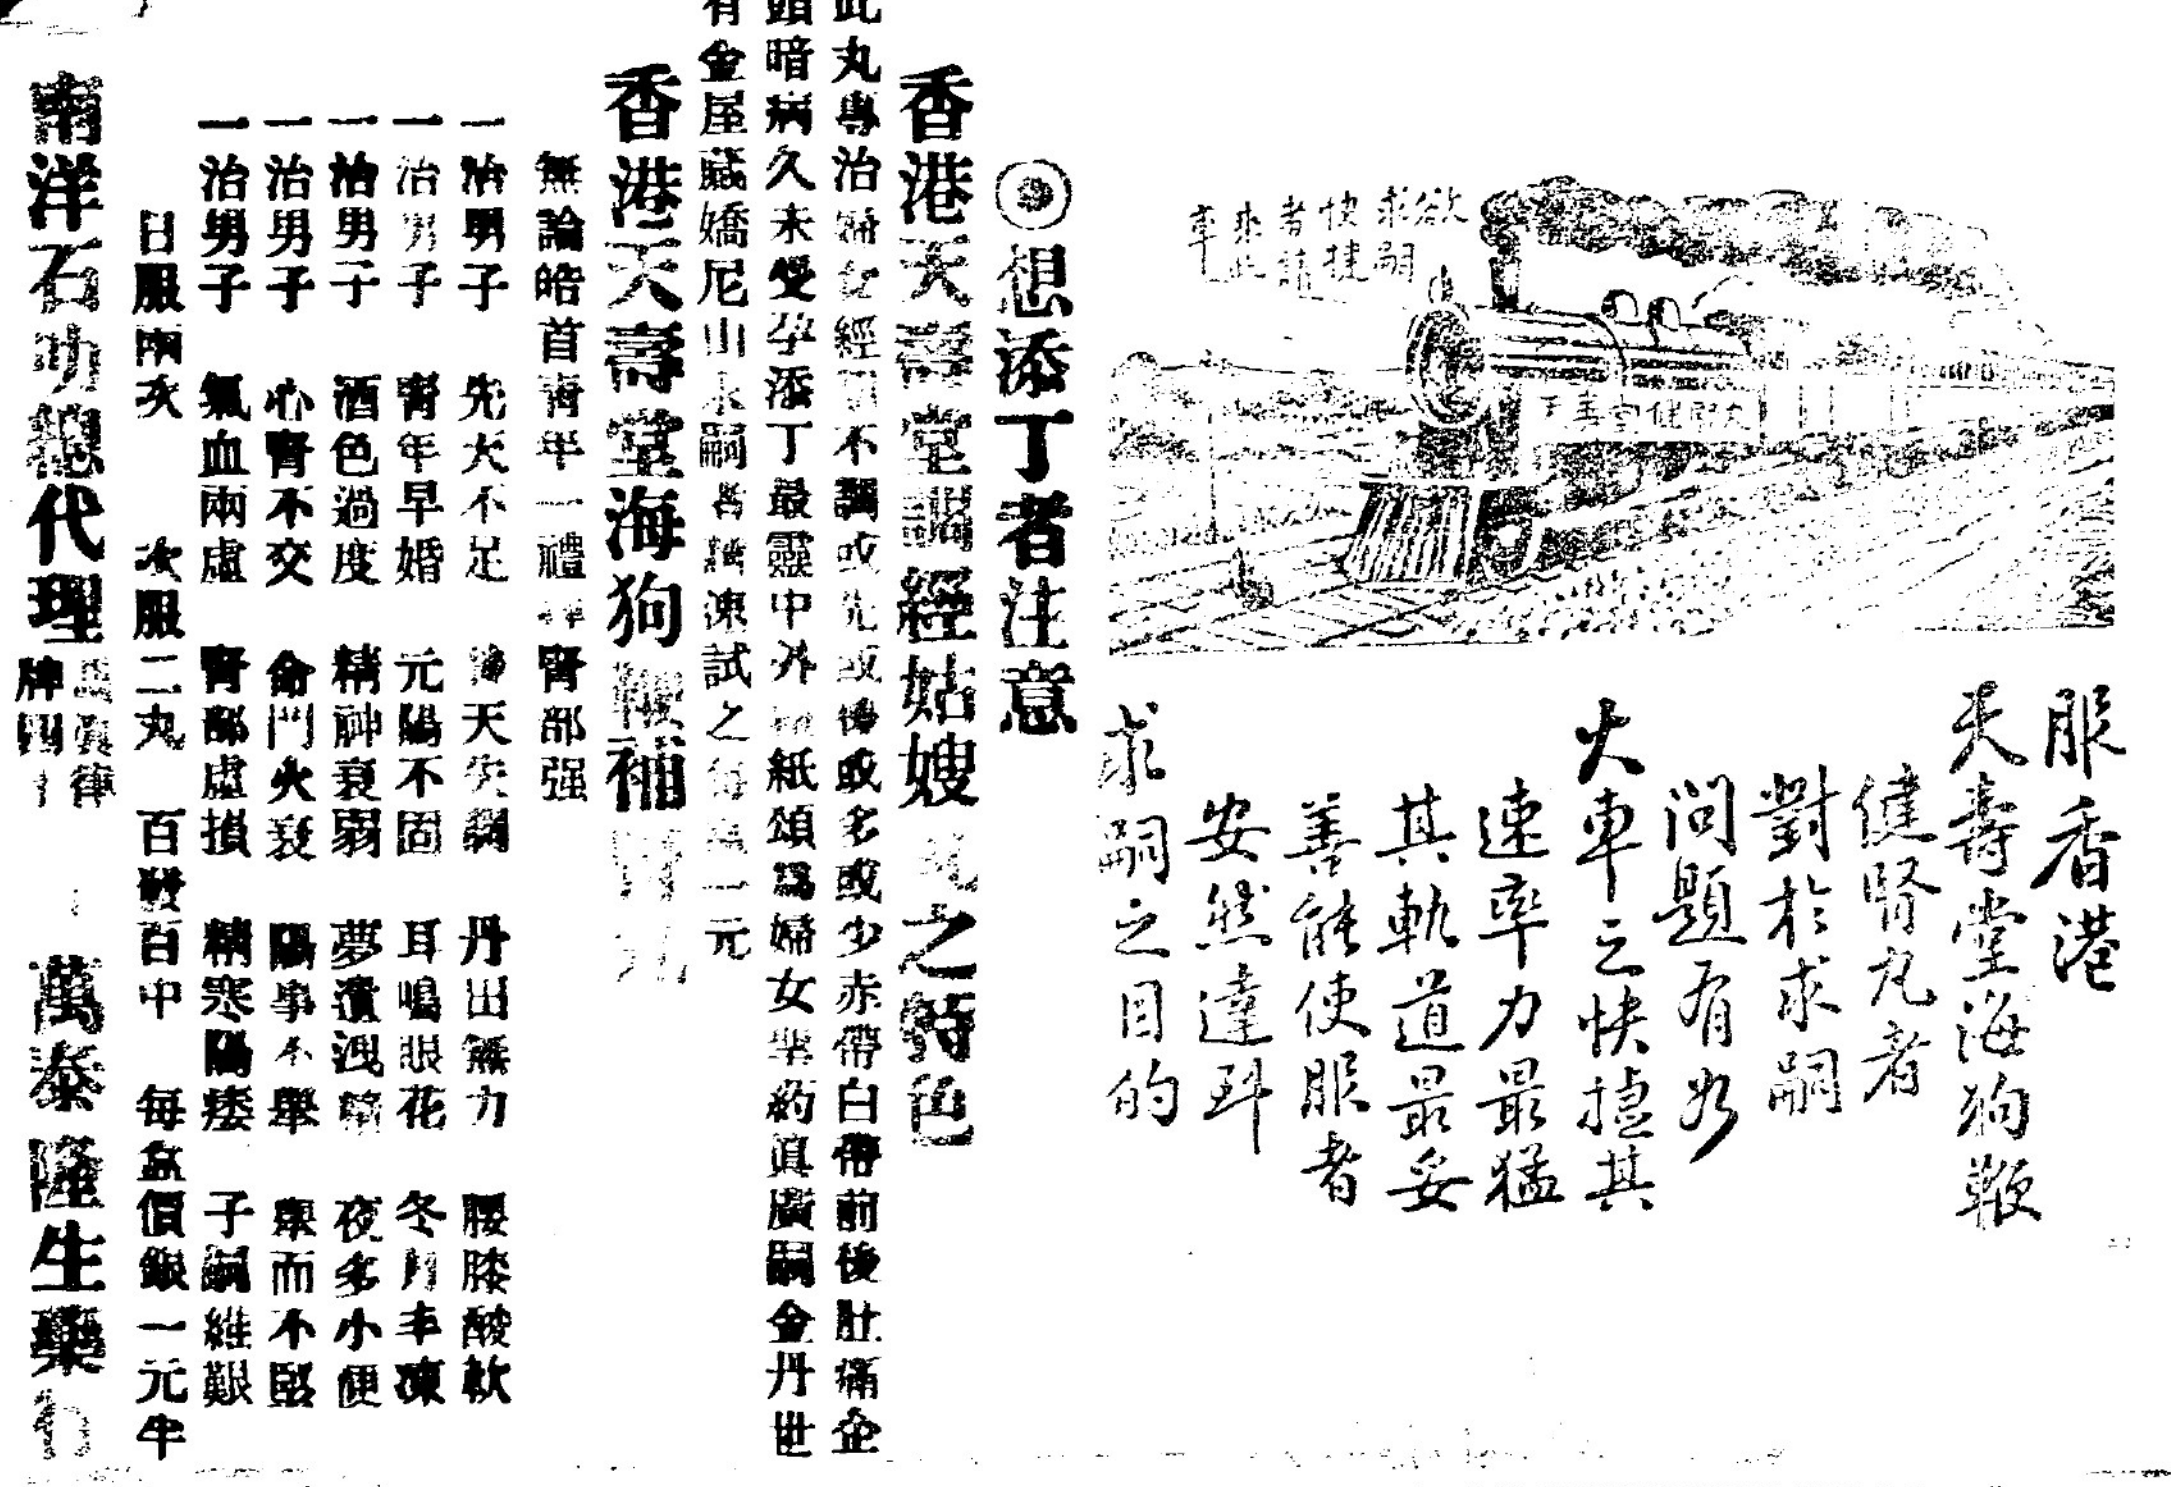 欲求嗣
快捷
者請
來此
車
服香港
天壽堂海狗鞭
健腎丸者
對於求嗣
問題有如
火車之快捷其
速率力最猛
其軌道最妥
善能使服者
安然達到
求嗣之目的
想添丁者注意
香港天壽堂調經姑嫂丸之特色
此丸專治婦女經期不調或先或後或多或少赤帶白帶前後肚痛企
頭暗病久未受孕添丁最靈中外 紙頌爲婦女聖葯眞廣嗣金丹世
有金屋藏嬌尼山求嗣者 速試之每 一元
香港天壽堂海狗鞭補腎丸
無論皓首靑年一 腎部强
一治男子 先天不足 後天失調 丹田無力 腰膝酸軟
一治男子 靑年早婚 元陽不固 耳鳴眼花 冬月丰凍
一治男子 酒色過度 精神衰弱 夢遺洩精 夜多小便
一治男子 心腎不交 命門火衰 陽事不舉 舉而不堅
一治男子 氣血兩虛 腎部虛損 精寒陽痿 子嗣維艱
日服兩次 次服二丸 百發百中 每盒價銀一元半
南洋石叻總代理
律
牌四
萬泰隆生藥行